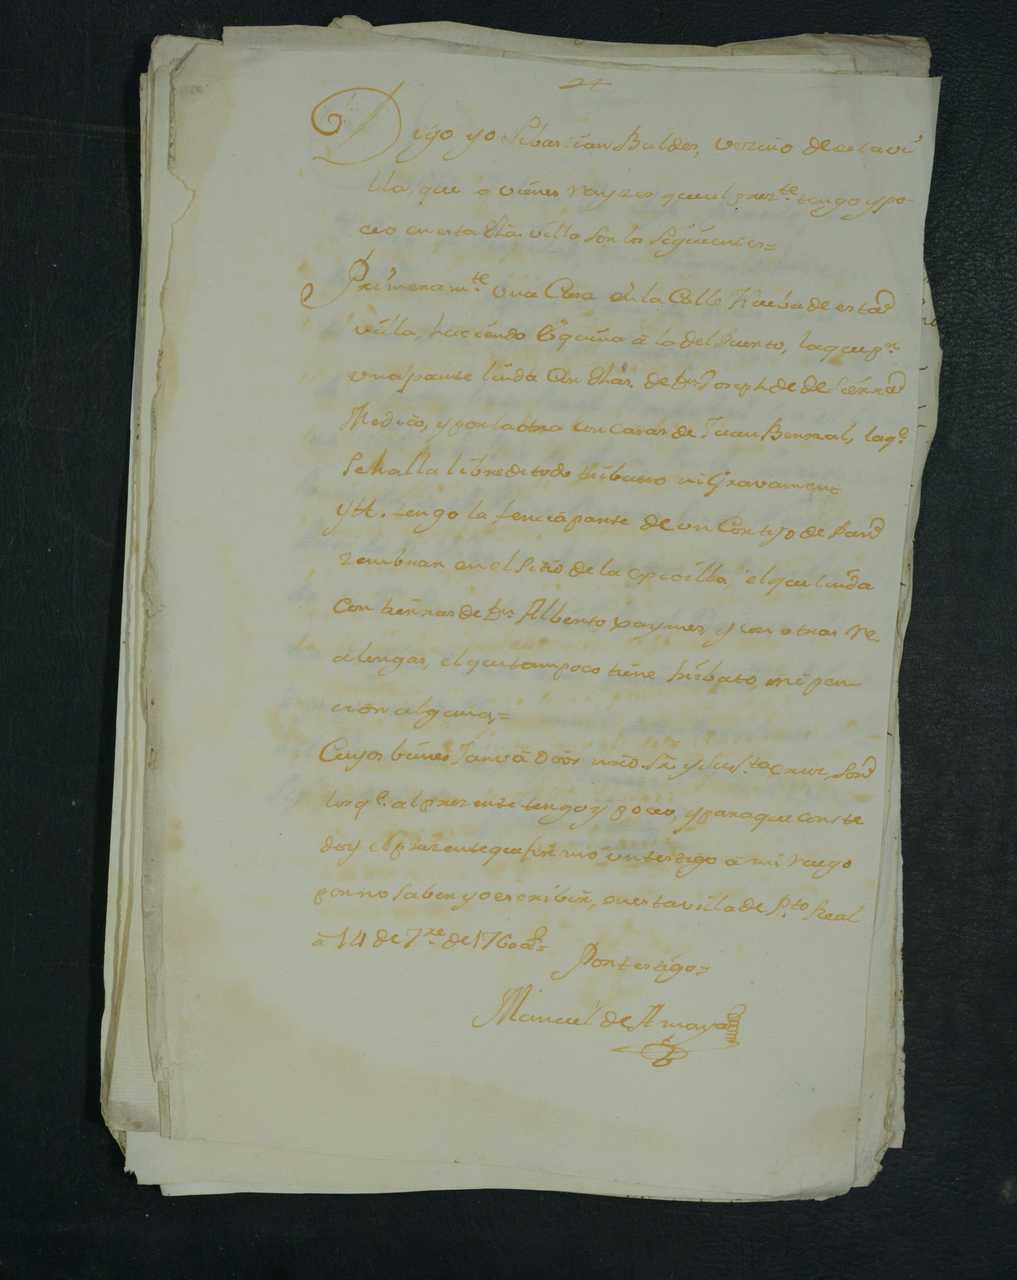 Digo yo Sebastian Baldes, vezino de esta vi
lla, que los vienes rayzes que al prezte. tengo y po-
ceo en esta dha villa son los siguientes=
Primeramte. una Casa en la Calle Nueba de esta
villa, haciendo Esquina a la del Puerto, la que pr.
una parte linda con dhas. de Dn. Joseph de
Medico, y por la otra con casas de Juan Bernal, la q.
se halla libre de todo tributo ni Gravamen=
Ytt. tengo la tercia parte de un Cortijo de pan
zembrar en el Sitio de la el que linda
con tierras de Dn. Alberto y con otras Re
alengas, el que tampoco tiene tributo, ni pen
cion alguna,=
Cuyos bienes Juro a Dios nro Sr. y su Sta. Cruz, son
los q. al prezente tengo y poceo, y para que conste
doy el prezente que firmó un testigo a mi ruego
por no saber yo escribir, en esta villa de Pto. Real
a 14 de 7re. de 1760 as.=
Por testigo=
Manuel de Amaya